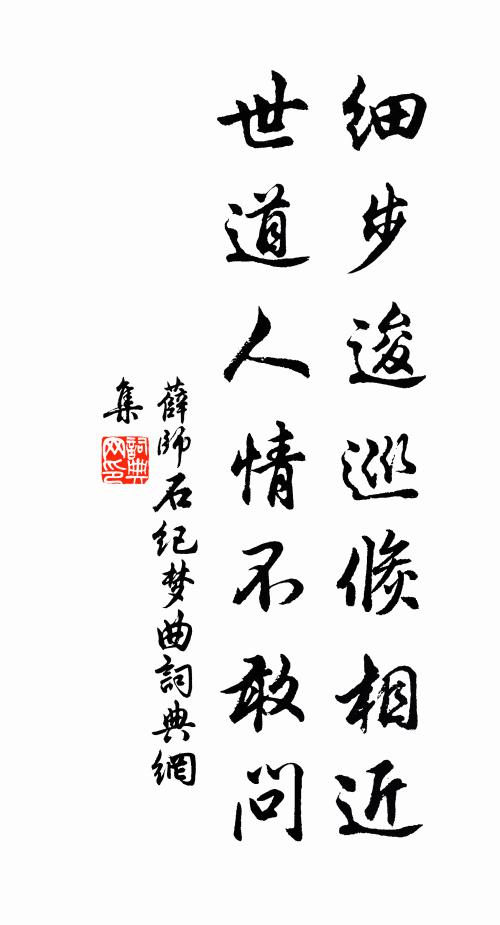 细步逡巡倏相近
世道人情不敢问
薛师石纪梦曲詞典網
集
詞典
网印